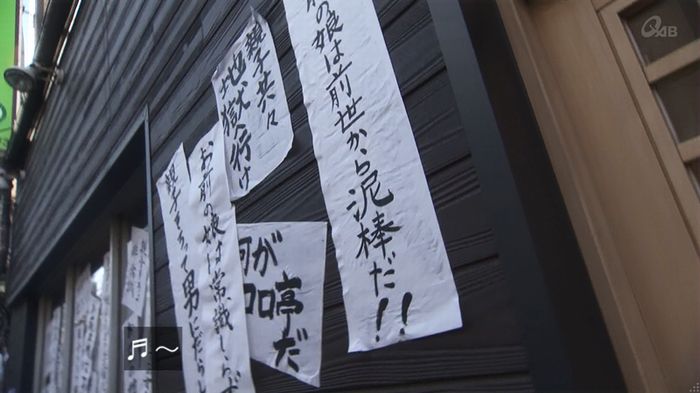 QAB
前の娘は前世から泥棒だ!!
親子共々
地獄行け
何が
亭だ
お前の娘は常識しらず
親子そろって男にだらし
♬～